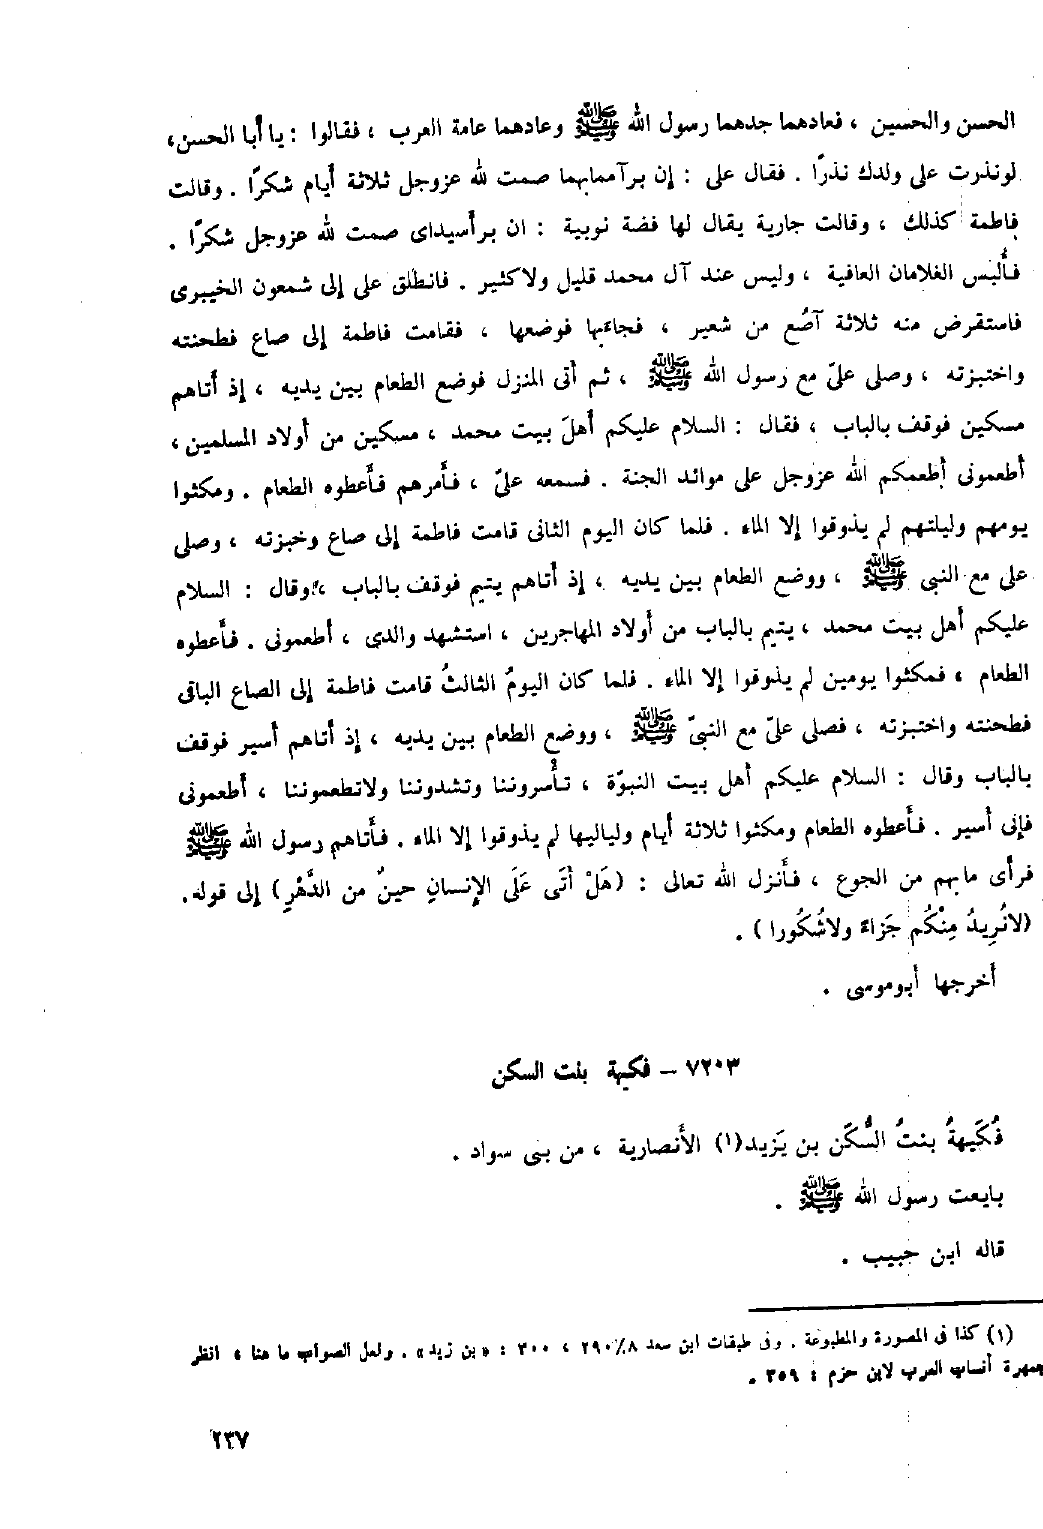 الحسن والحسين ، فعادهما جدهما رسول الله ﷺ وعادهما عامة العرب ، فقالوا : يا أبا الحسن،
لونذرت على ولدك نذرًا . فقال على : إن برآ ممابهما صمت لله عزوجل ثلاثة أيام شكرًا . وقالت
فاطمة كذلك ، وقالت جارية يقال لها فضة نوبية : ان برأ سيداى صمت لله عزوجل شكرًا .
فأُلبس الغلامان العافية ، وليس عند آل محمد قليل ولاكثير . فانطلق على إلى شمعون الخيبرى
فاستقرض منه ثلاثة آصُع من شعير ، فجاءبها فوضعها ، فقامت فاطمة إلى صاع فطحنته
واختبزته ، وصلى علىّ مع رسول الله ﷺ ، ثم أتى المنزل فوضع الطعام بين يديه ، إذ أتاهم
مسكين فوقف بالباب ، فقال : السلام عليكم أهلَ بيت محمد ، مسكين من أولاد المسلمين ،
أطعمونى أطعمكم الله عزوجل على موائد الجنة . فسمعه علىّ ، فأمرهم فأعطوه الطعام . ومكثوا
يومهم وليلتهم لم يذوقوا إلا الماء . فلما كان اليوم الثانى قامت فاطمة إلى صاع وخبزته ، وصلى
على مع النبى ﷺ ، ووضع الطعام بين يديه ، إذ أتاهم يتيم فوقف بالباب ، وقال : السلام
عليكم أهل بيت محمد ، يتيم بالباب من أولاد المهاجرين ، استشهد والدى ، أطعمونى . فأعطوه
الطعام ، فمكثوا يومين لم يذوقوا إلا الماء . فلما كان اليومُ الثالثُ قامت فاطمة إلى الصاع الباقى
فطحنته واختبزته ، فصلى علىّ مع النبىّ ﷺ ، ووضع الطعام بين يديه ، إذ أتاهم أسير فوقف
بالباب وقال : السلام عليكم أهل بيت النبوّة ، تأْسروننا وتشدوننا ولاتطعموننا ، أطعمونى
فإنى أسير . فأعطوه الطعام ومكثوا ثلاثة أيام ولياليها لم يذوقوا إلا الماء . فأتاهم رسول الله ﷺ
فرأى مابهم من الجوع ، فأنزل الله تعالى : (هَلْ أتَى عَلَى الإنسانِ حينٌ من الدَّهْرِ) إلى قوله.
(لانُرِيدُ مِنْكُم جَزاءً ولاشُكُورا ) .
أخرجها أبوموسى .
٧٢٠٣ – فكيهة بنت السكن
فُكَيهةُ بنتُ السُّكَن بن يَزيد(١) الأنصارية ، من بنى سواد .
بايعت رسول الله ﷺ .
قاله ابن حبيب .
(١) كذا فى المصورة والمطبوعة . وفى طبقات ابن سعد ٨/٢٩٠ ، ٣٠٠ : «بن زيد» . ولعل الصواب ما هنا ، انظر
جمهرة أنساب العرب لابن حزم : ٣٥٩ .
٢٣٧